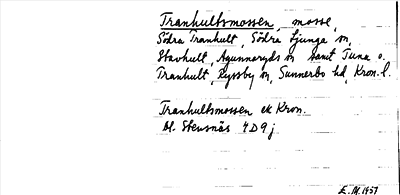 Tranhultsmossen, mosse,
Södra Tranhult, Södra Ljunga sn,
Stavhult, Agunnaryds sn samt Tuna o.
Tranhult, Ryssby sn, Sunnerbo hd, Kron. l.
Tranhultsmossen ek Kron.
bl. Stensnäs 4D9j
E. M. 1957